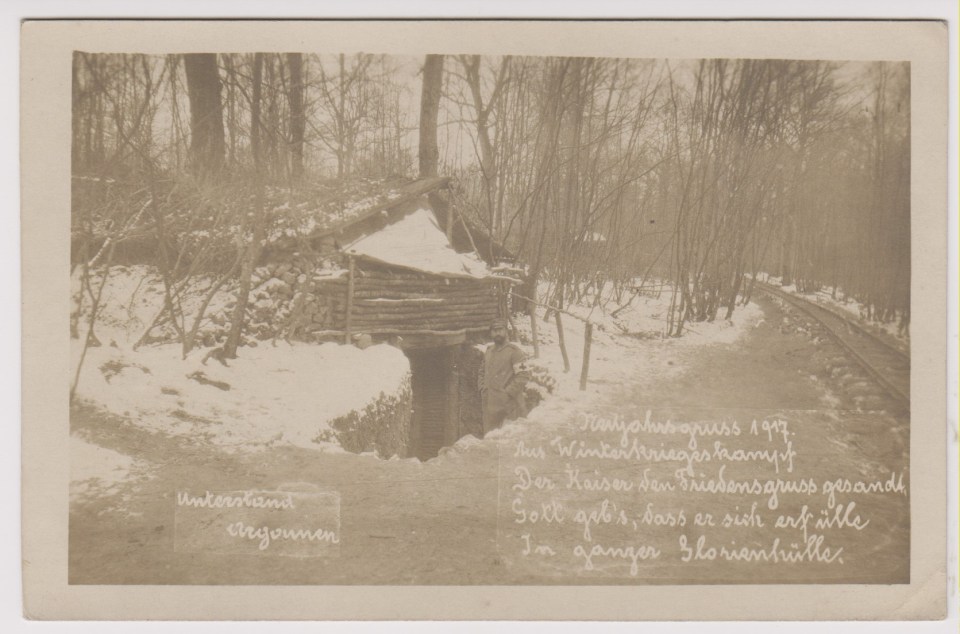 Unterstand
Argonnen
Neujahrsgruss 1917.
Aus Winterkriegeskampf
Der Kaiser den Friedensgruss gesandt,
Gott geb's, dass er sich erfülle
In ganzer Glorienhülle.